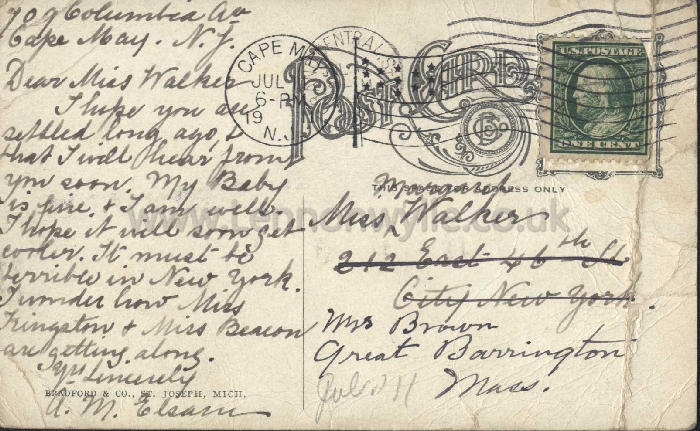 709 Columbia Av
Cape May. N.J.
Dear Miss Walker
I hope you are
settled long ago, &
that I will hear from
you soon. My Baby
is fine. & I am well.
I hope it will soon get
cooler. It must be
terrible in New York.
I wonder how Miss
Kingston & Miss Beacon
are getting along.
Yrs Sincerely
A. M. Elsam
BRADFORD & CO., ST. JOSEPH, MICH.
CAPE MAY
JUL
6-PM
19
N.J.
CENTRAL
POST CARD
U.S. POSTAGE
ONE CENT
THIS SPACE FOR ADDRESS ONLY
Miss Walker
212 East 46th St
City New York.
Mrs Brown
Great Barrington
Mass.